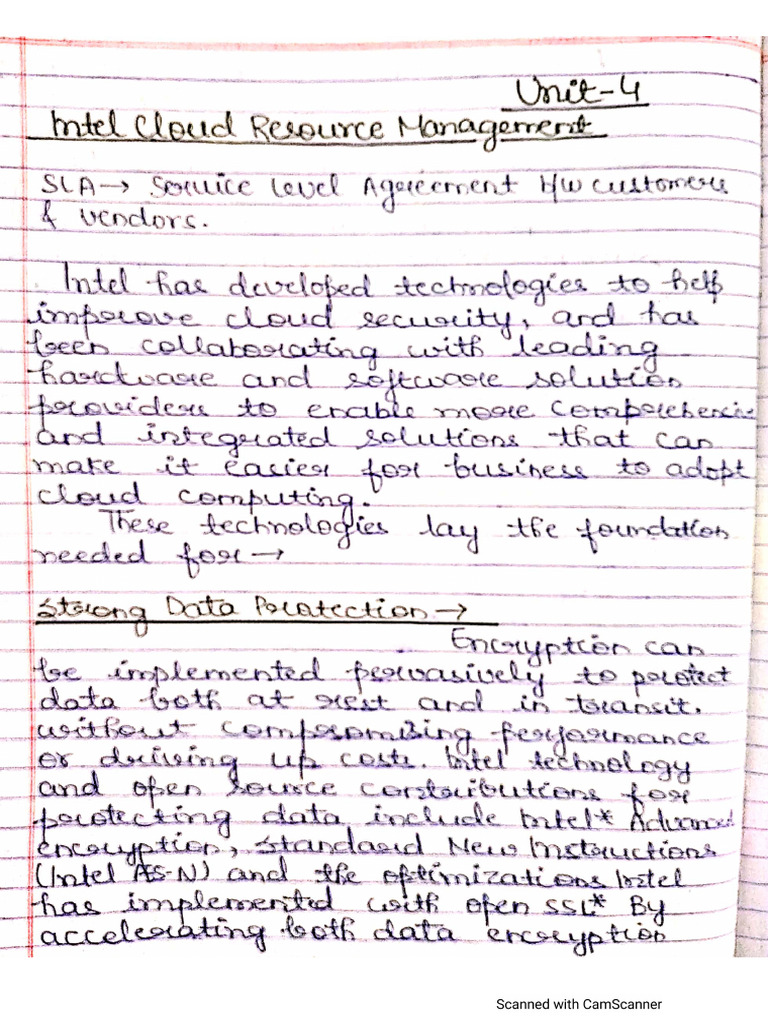 Unit-4
Intel Cloud Resource Management
SLA→ Service Level Agreement b/w customers
& vendors.
Intel has developed technologies to help
improve cloud security, and has
been collaborating with leading
hardware and software solution
providers to enable more comprehencive
and integrated solutions that can
make it easier for business to adopt
cloud computing.
These technologies lay the foundation
needed for →
Strong Data Protection →
Encryption can
be implemented pervasively to protect
data both at rest and in transit.
without compromising performance
or driving up costs. Intel technology
and open source contributions for
protecting data include Intel* Advanced
encryption, standard New Instructions
(Intel AES-N) and the optimizations Intel
has implemented with open SSL* By
accelerating both data encryption
Scanned with CamScanner